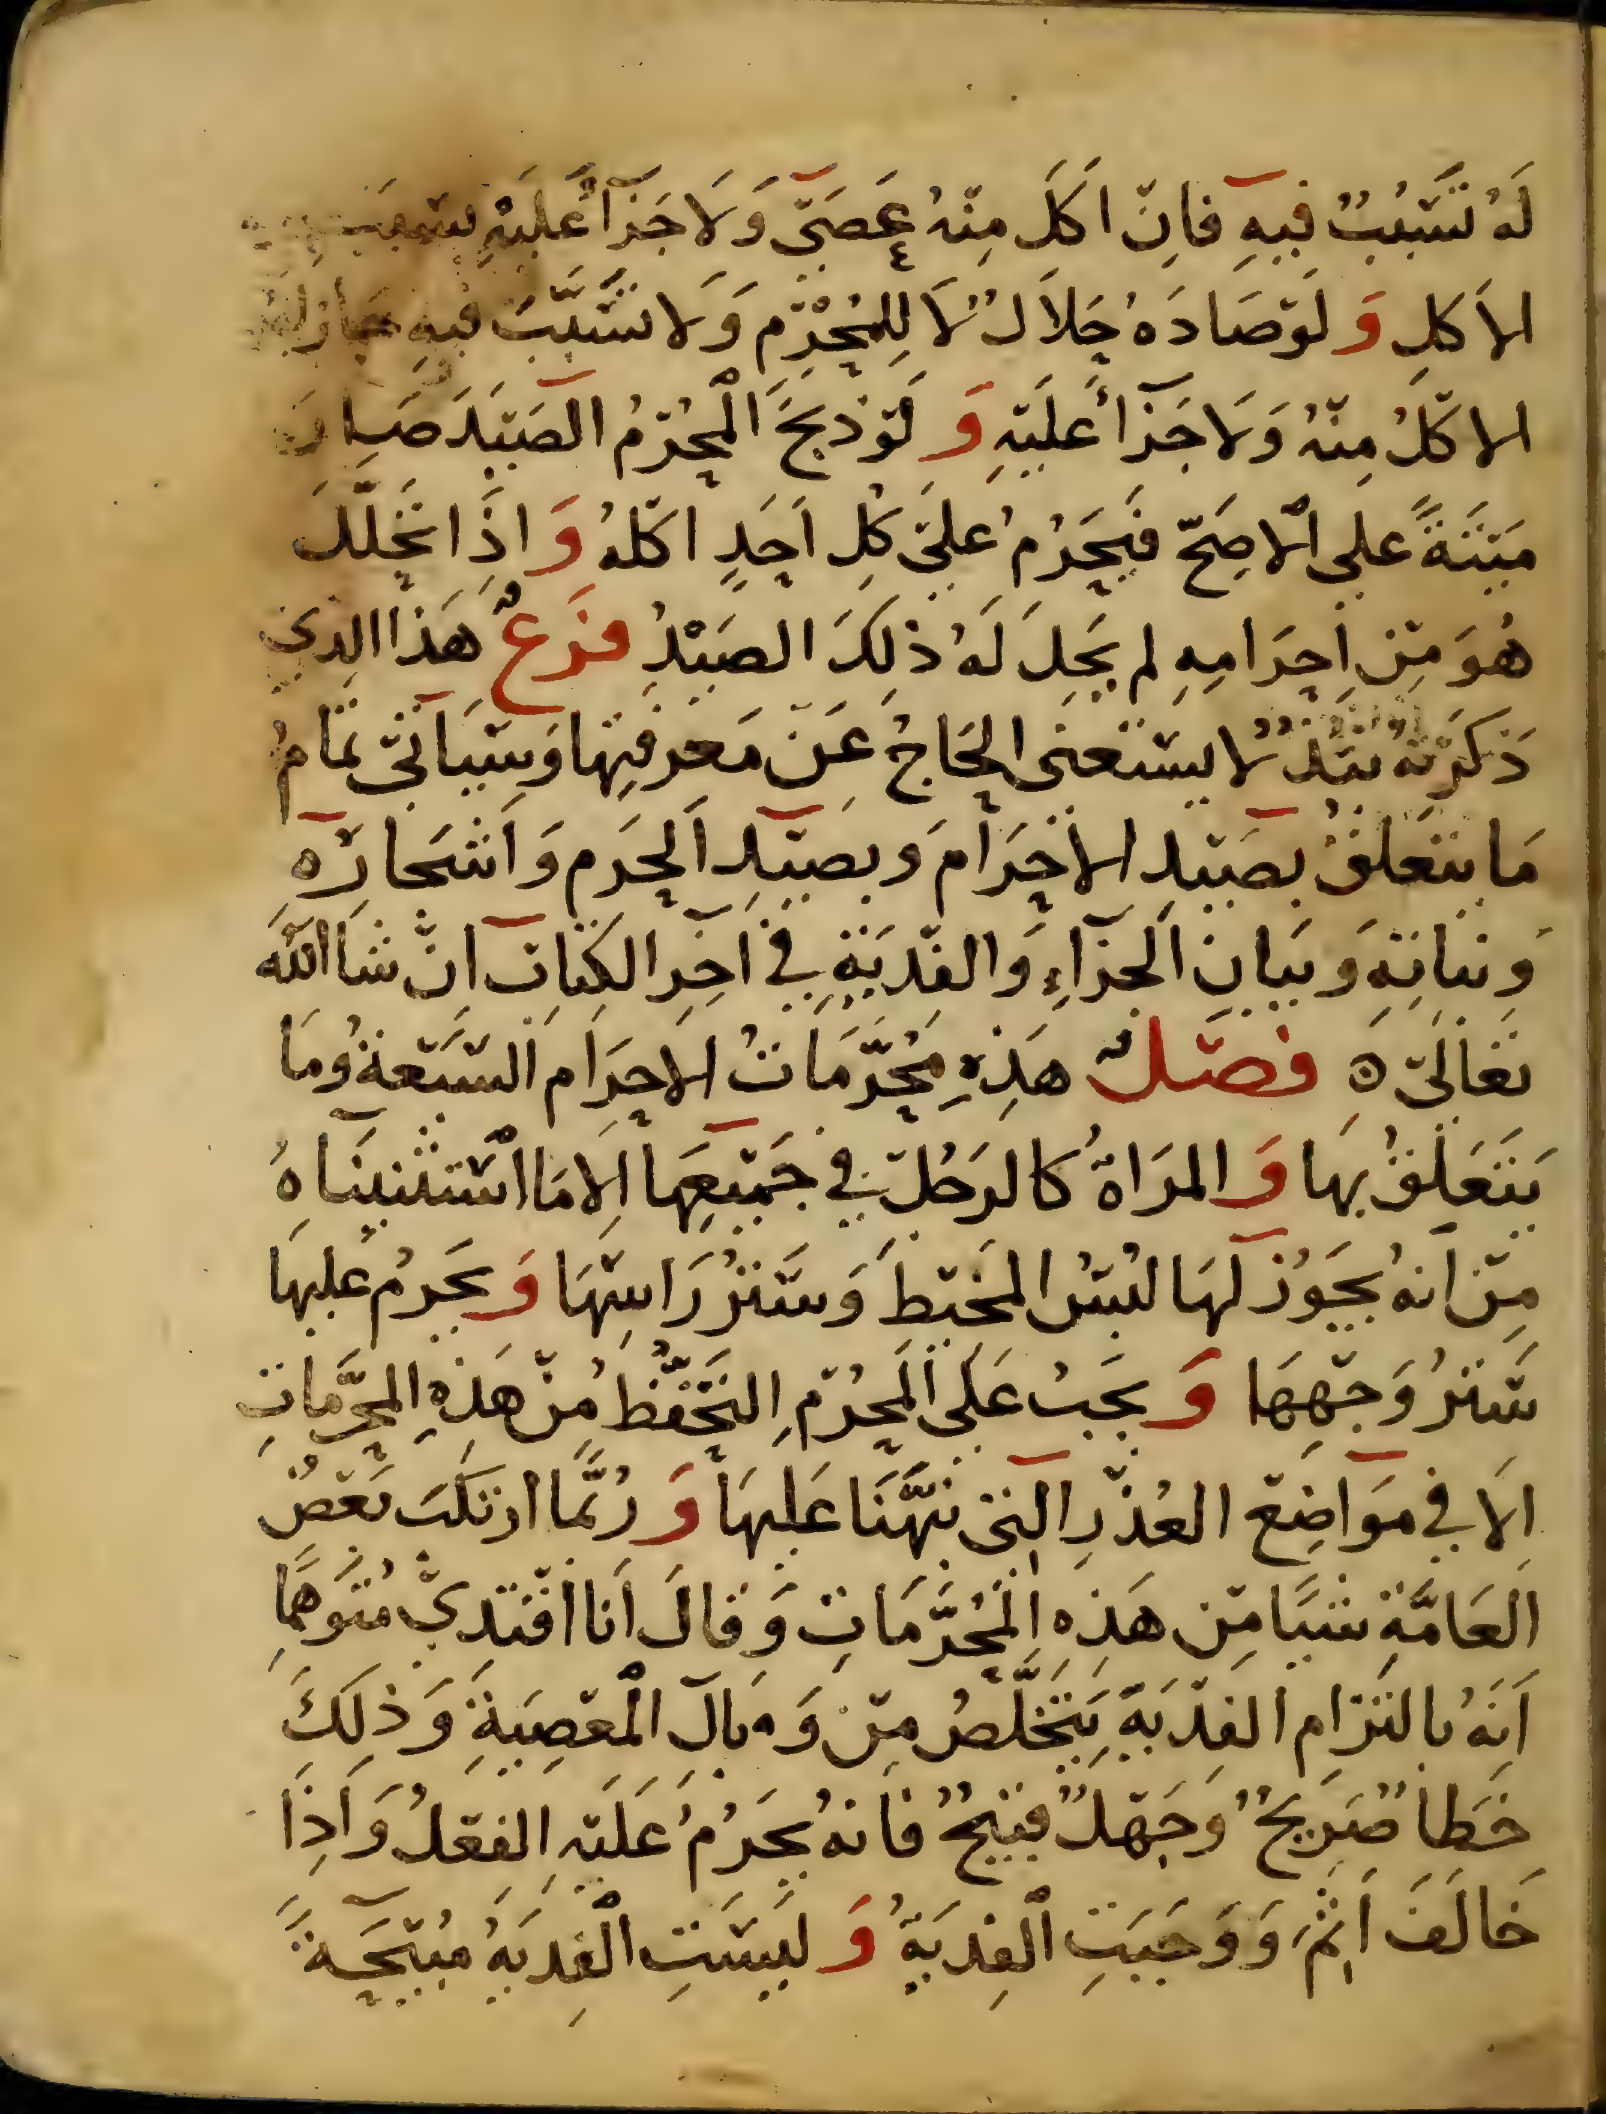 لَهُ تَسَبُبٌ فِيهِ فَاِنْ اَكَلَ مِنْهُ عَصَىٰ وَلَا جَزَآءَ عَلَيْهِ بِسَبَبِ
الاَكلِ وَلَوْ صَادَهُ حَلَالٌ لَا لِلْمُحْرِمِ وَلَا تَسَبَّبَ فِيهِ جَازَ لَهُ
الاكْلُ مِنْهُ وَلَا جَزَآءَ عَلَيْهِ وَلَوْ ذبَحَ الْمُحْرِمُ الصَيْدَ صَارَ
مَيْتَةً عَلى الْاصَحّ فَيَحْرُمُ عَلىَ كُلِ اَحَدٍ اكْلهُ وَاِذَا تَحَلَّلَ
هُوَ مِنْ اِحرَامِهِ لم يَحِلَ لَهُ ذلِكَ الصَيْدُ فرْعٌ هَذا الذِي
ذكَرْتهُ نبَذٌ لا يَسْتغنى الحَاجُ عَنْ مَعرفتِهَا وَسَيَاتى تمَامُ
مَا يتَعَلقُ بصَيْدِ الاحْرَام وَبصَيْدِ الحَرَم وَاَشجَارْه
وَنبَاتِهِ وَبيَانِ الجَزآءِ وَالفدْيَةِ فِي آخِر الكِتابْ انْ شَا اللهُ
تعَالىَ ه فصْلٌ هَذِهِ مُحَرَّمَاتُ الاِحرَام السَبْعَة وَمَا
يَتَعَلقُ بهَا وَالمرَاةُ كالرَجُلْ فِي جَمْيعِهَا اِلا مَا اسْتَثْنَينَاهُ
مِنْ انهُ يجَوُز لهَا لبْسُ المخيْط وَسَتْرُ رَاسِهَا وَيحَرمُ عَليهَا
سَتْرُ وَجْهِهَا وَيجَبُ عَلَى الْمحْرُمِ التَحَفّظ مِنْ هَذِهِ المحَرَّمَاتِ
اِلا فِي مَوَاضِعْ العُذْر التى نبَّهْنَا عَليهَا وَرُبَّمَا ارتكَبَ بَعْضُ
العَامَّةِ شيَا مِنْ هَذِهِ الْمُحَرَّمَاتِ وَقالَ اَنا افْتدِيْ مُتَوَهِّمًا
اَنهُ بالتِزَامِ الفِدْيَةِ يَتَخَلَّصُ مِنْ وَبَالَ الْمَعْصِيَةِ وَذلِكَ
خَطَا صَرِيحٌ وَجَهْلٌ قبِيحٌ فانهُ يحرُمُ عَليْهِ الفعْلُ وَاِذَا
خَالَفَ اَثِمَ وَوَجَبَتِ الْفِديَةُ وَليسَتِ الْفِديَةُ مُبيْحَةً